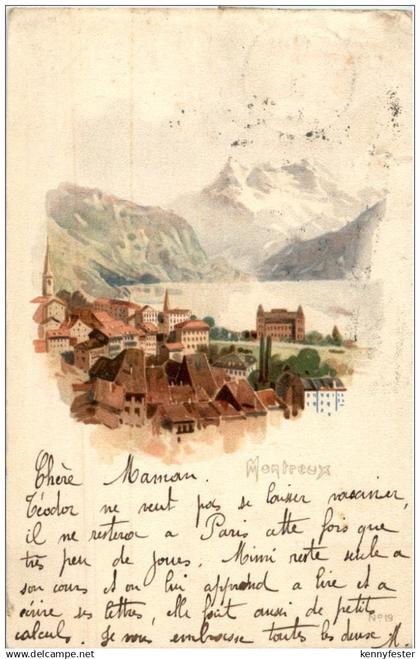 Montreux
Chère Maman.
Téodor ne veut pas se laisser vacciner,
il ne restera a Paris cette fois que
très peu de joues. Mimi reste seule a
son cours et on lui apprend a lire et a
écrire ses lettres, elle fait aussi de petits
calculs. Je vous embrasse toutes les deux M.
No 19
www.delcampe.net
kennyfester